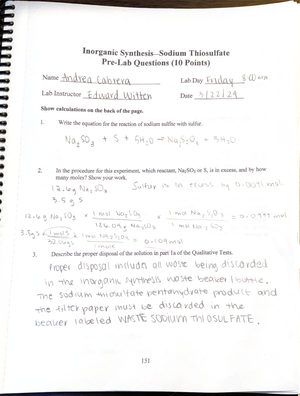 Inorganic Synthesis–Sodium Thiosulfate
Pre-Lab Questions (10 Points)
Name Andrea Cabrera Lab Day Friday 8:00
Lab Instructor Eduard Witten Date 3/22/24
Show calculations on the back of the page.
1. Write the equation for the reaction of sodium sulfite with sulfur.
Na₂SO₃ + S + 5H₂O → Na₂S₂O₃ • 5H₂O
2. In the procedure for this experiment, which reactant, Na₂SO₃ or S, is in excess, and by how
many moles? Show your work.
12.6g Na₂SO₃ Sulfur is in excess by 0.0091 mol
3.5g S
12.6g Na₂SO₃ × 1 mol Na₂SO₃ / 126.04g Na₂SO₃ × 1 mol Na₂S₂O₃ / 1 mol Na₂SO₃ =
3.5g S × 1 mol S / 32.06g S × 1 mol Na₂S₂O₃ / 1 mol S = 0.109 mol
3. Describe the proper disposal of the solution in part 1a of the Qualitative Tests.
Proper disposal includes all waste being discarded
in the inorganic synthesis waste beaker/bottle.
The sodium thiosulfate pentahydrate product and
the filter paper must be discarded in the
beaker labeled WASTE SODIUM THIOSULFATE.
151